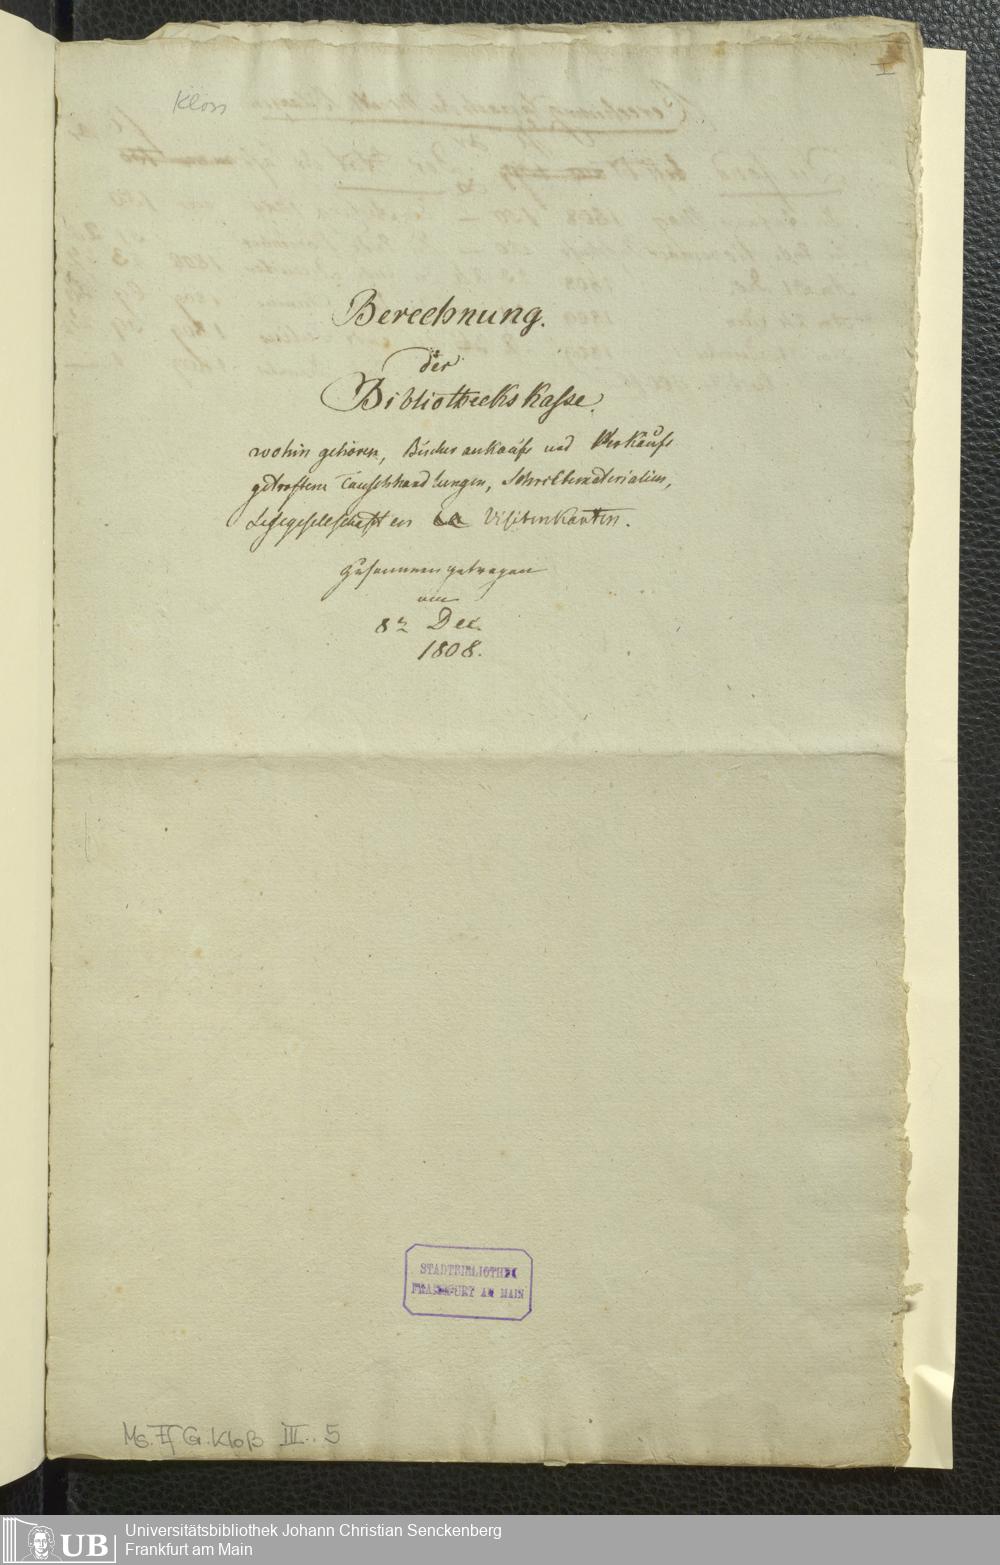 Kloss
I
Berechnung.
der
Bibliothecks Kasse.
wohin gehören, Bücher ankäufe und Verkäufe
getroffene Tauschhandlungen, Schreibmaterialien,
Lesegesellschaften Visitenkarten.
Zusammen getragen
am
8n Dec.
1808.
STADTBIBLIOTHEK
FRANKFURT AM MAIN
Ms. Ff G. Kloß III.. 5
UB
Universitätsbibliothek Johann Christian Senckenberg
Frankfurt am Main